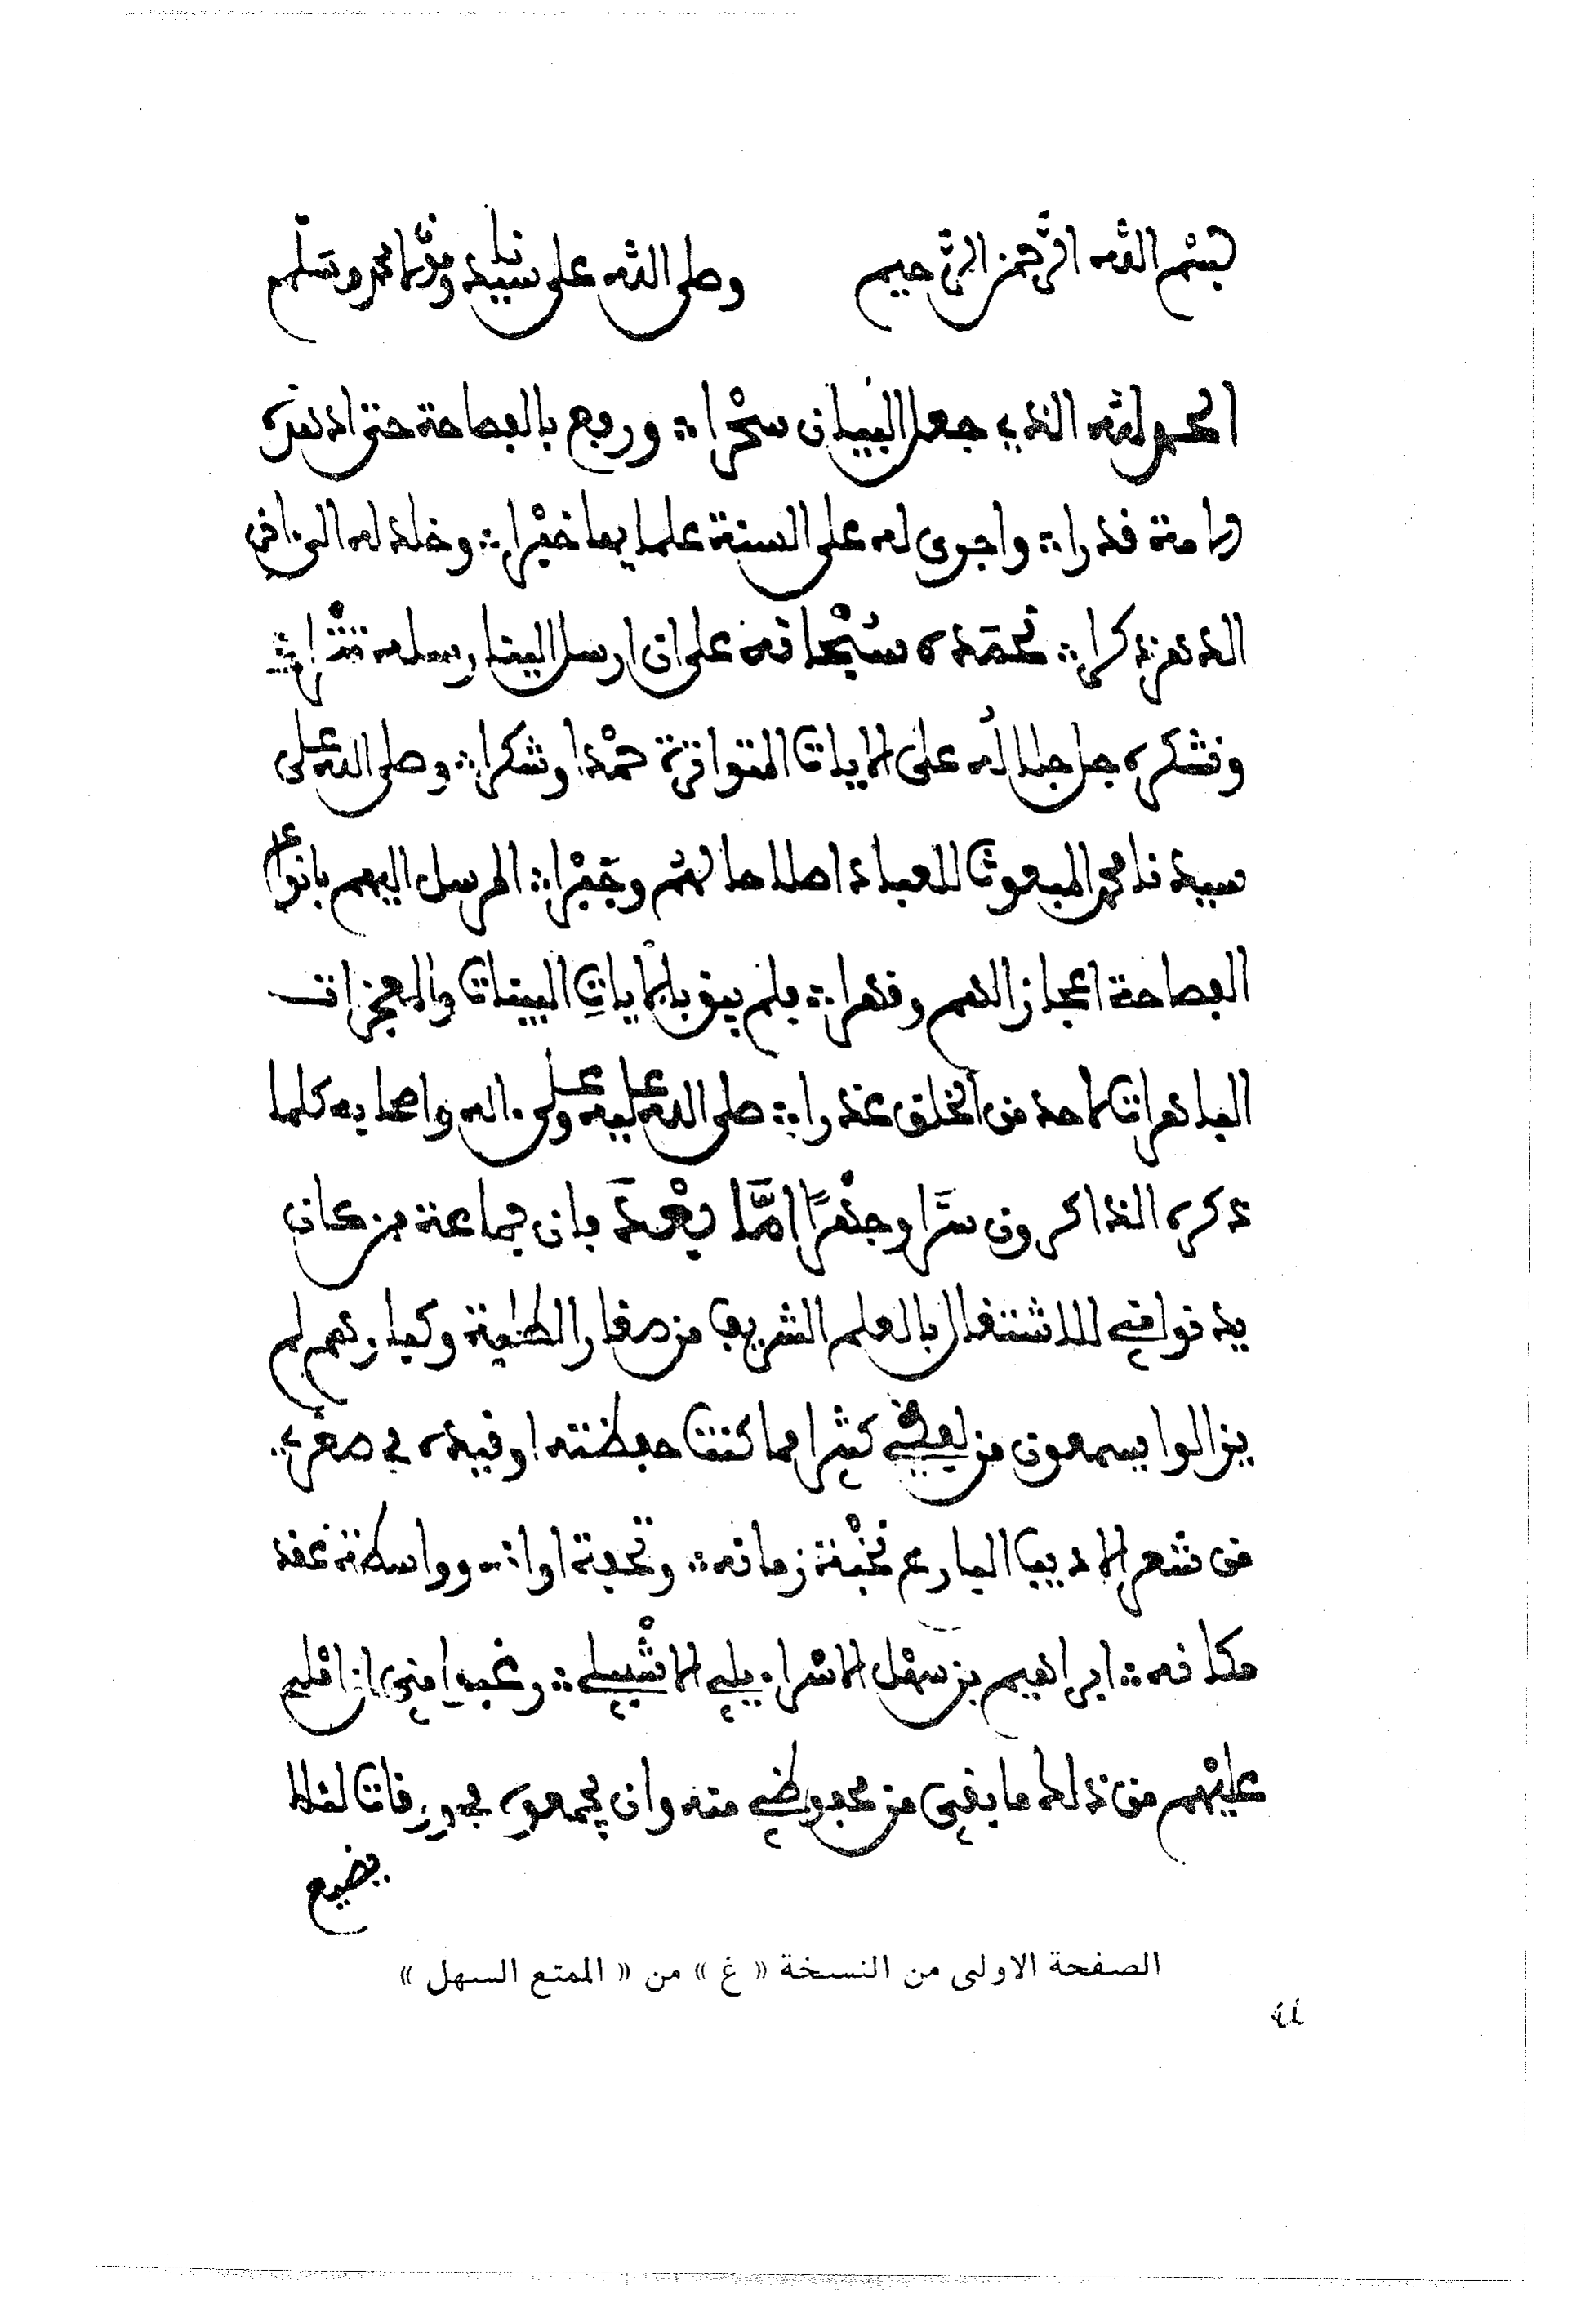 بسم الله الرحمن الرحيم وصلى الله على سيدنا ومولانا محمد وسلم
الحمد لله الذي جعل البيان سحرا ؞ ورفع بالفصاحة حتى اذهنت
قدرا ؞ واجرى له على السنة علمايها خيرا ؞ وخلد له الى اخر
الدهر ذكرا ؞ نحمده سبحانه على ان ارسل الينا رسله تترا ؞
ونشكره جل جلاله على الايات المتواترة حمدا وشكرا ؞ وصلى الله على
سيدنا محمد المبعوث للعباد اصلاحا لهم وجبرا ؞ المرسل اليهم بانواع
الفصاحة اعجازا لهم وقهرا ؞ فلم يبق بالايات البينات والمعجزات
الباهرات لاحد من الخلق عذرا ؞ صلى الله عليه وعلى اله واصحابه كلما
ذكره الذاكرون سرا وجهرا اما بعد فان جماعة من كان
يدنو الي للاشتغال بالعلم الشريف من صغار الطلبة وكبارهم لم
يزالوا يسمعون من لفظي كثيرا مما كنت حفظته او قيدته في صغري
من شعر الاديب البارع نخبة زمانه ؞ وتحفة اوانه وواسطة عقد
مكانه ؞ ابراهيم بن سهل الاسرايلي الاشبيلي ؞ رغبوا مني ان املي
عليهم من ذلك ما بقي من محفوظي منه وان يجمعوه في ورقات ليلا
يضيع
الصفحة الاولى من النسخة « غ » من « الممتع السهل »